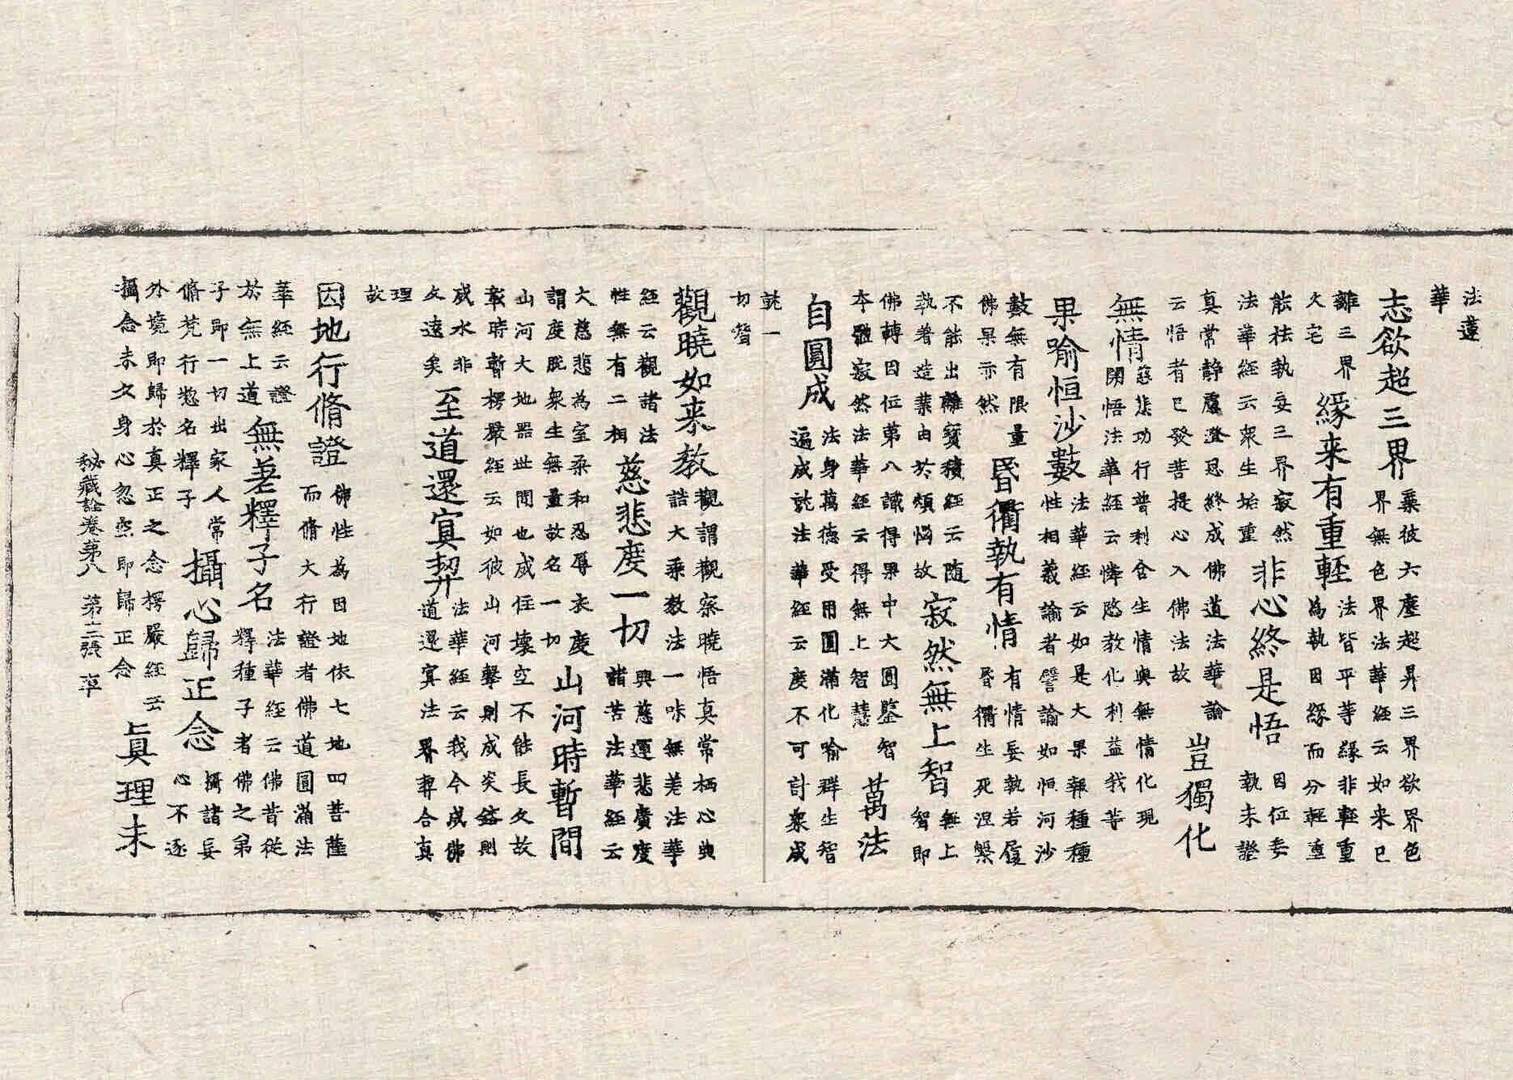 法蓮
華
志欲超三界
棄彼六塵超昇三界欲界色
界無色界法華經云如来已
離三界
火宅
緣来有重輕
法皆平等緣非輕重
為執因緣而分輕重
能祛執妄三界寂然
法華經云衆生始重
非心終是悟
因位委
執未證
真常静慮澄忍終成佛道法華論
云悟者已發菩提心入佛法故
豈獨化
無情
慈悲功行普利含生情與無情化現
開悟法華經云憐愍教化利益我等
果喻恒沙數
法華經云如是大果報種種
性相義論者譬喻如恒河沙
數無有限量
佛果示然
昏衢執有情
有情妄執若履
昏衢生死涅槃
不能出離寶積經云随
執着造業由於煩惱故
寂然無上智
無上
智即
佛轉因位第八識得果中大圓鑒智
本體寂然法華經云得無上智慧
萬法
自圓成
法身萬德受用圓滿化喻群生智
遍成就法華經云度不可計衆成
就一
切智
觀曉如来教
觀謂觀察曉悟真常栖心典
誥大乘教法一味無差法華
經云觀諸法
性無有二相
慈悲度一切
興慈運悲廣度
諸苦法華經云
大慈悲為室柔和忍辱衣度
謂度脱衆生無量故名一切
山河時暫間
山河大地器世間也成住壞空不能長久故
彰時暫楞嚴經云如彼山河擊則成炎鎔則
成水非
久遠矣
至道還寘契
法華經云我今成佛
道還寘法界尋合真
理
故
因地行脩證
佛性為因地依七地四菩薩
而脩大行證者佛道圓滿法
華經云證
於無上道
無差釋子名
法華經云佛昔從
釋種子者佛之弟
子即一切出家人常
脩梵行惣名釋子
攝心歸正念
攝諸妄
心不逐
外境即歸於真正之念楞嚴經云
攝念未久身心忽然即歸正念
眞理未
秘藏詮卷第八 第十二張 草